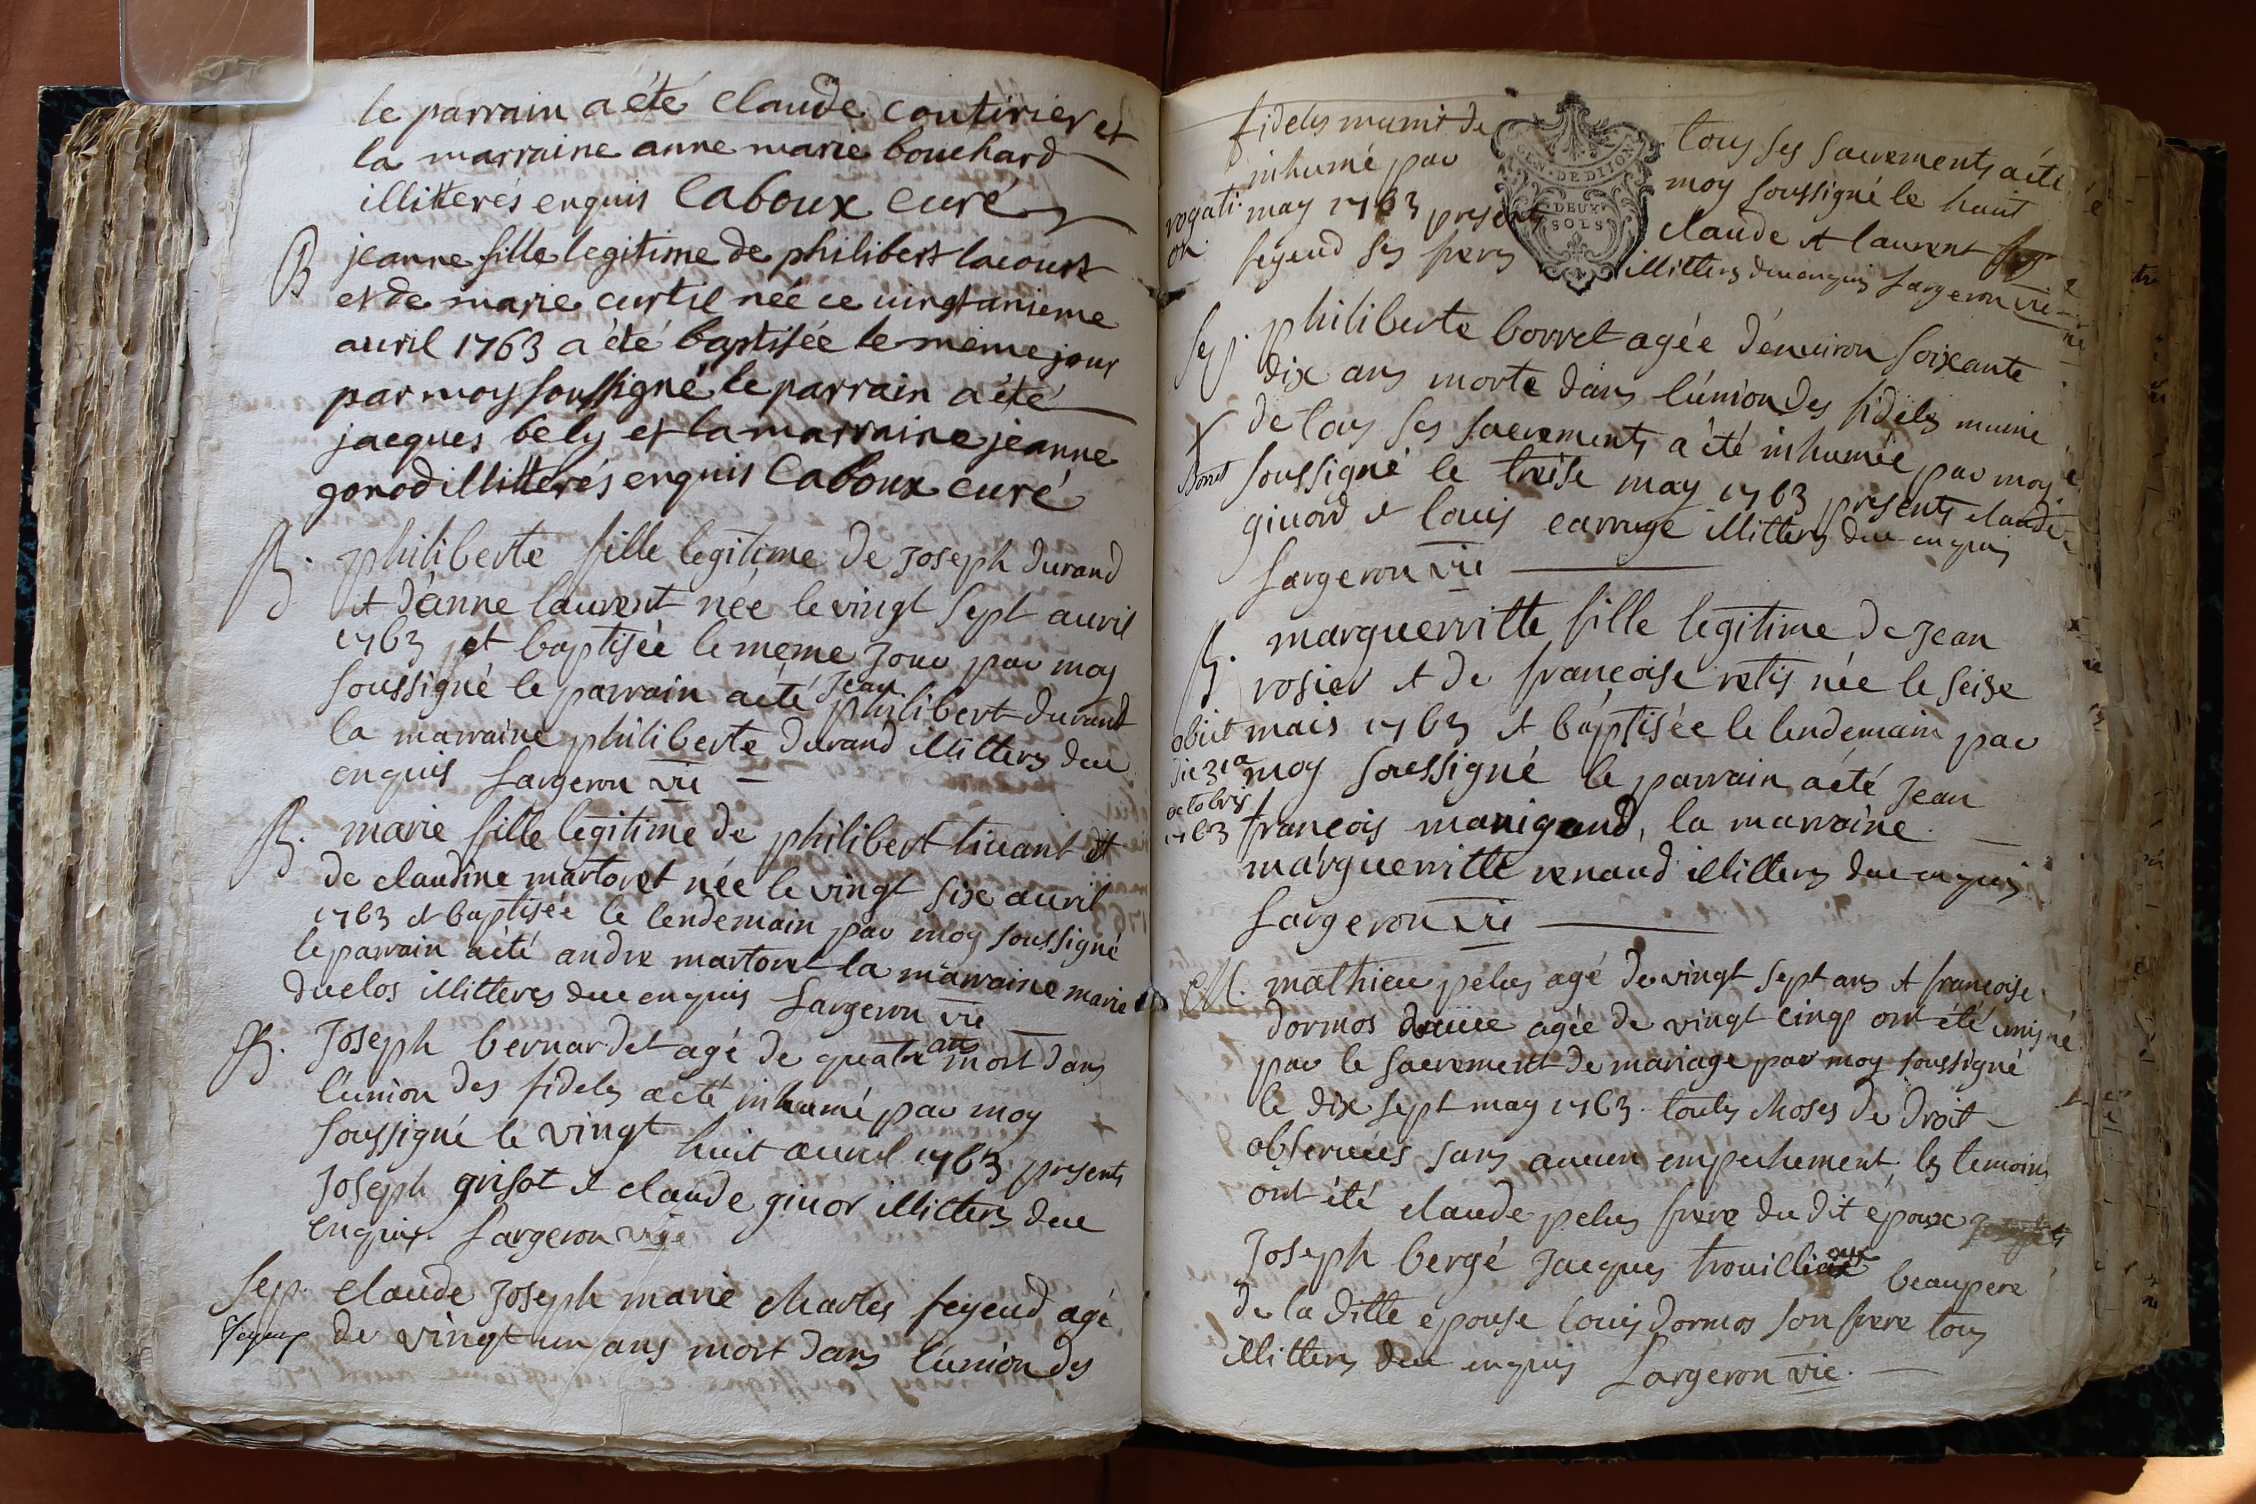 le parrain a été claude coutirier et
la marraine anne marie bouchard
illitterés enquis Caboux curé
B jeanne fille legitime de philibert lacourt
et de marie curtil née ce vingtunieme
auril 1763 a été baptisée le même jour
par moy soussigné le parrain a été
jacques bely et la marraine jeanne
gonod illitterés enquis Caboux curé
B. philiberte fille legitime de Joseph durand
et d'anne laurent née le vingt sept auril
1763 et baptisée le meme jour par moy
soussigné le parrain a été Jean philibert durand
la marraine philiberte durand illitters due
enquis Largeron vic
B. marie fille legitime de philibert tiuant et
de claudine martoret née le vingt six auril
1763 et baptisée le lendemain par moy soussigné
le parrain a été andre martoret la marraine marie
duclos illitteres due enquis Largeron vic
B. Joseph bernardet agé de quatre ans mort dans
l'union des fideles a été inhumé par moy
soussigné le vingt huit auril 1763 presents
Joseph grisot et claude giuor illitters due
enquis Largeron vic
Sep. claude Joseph marie charles feyeud agé
feyeux de vingt un ans mort dans l'union des
fideles munit de tous ses sacrements a été
inhumé par moy soussigné le huit
rogati may 1763 presents claude et laurent
on feyeud ses freres illitters due enquis Largeron vic
GEN. DE DIJON
DEUX
SOLS
Sep. philiberte borret agée d'enuiron soixante
dix ans morte dans l'union des fideles munie
de tous ses sacrements a été inhumée par moy
Borret soussigné le treise may 1763 presents claude
giuord et louis carruge illitters due enquis
Largeron vic
B. marguerritte fille legitime de Jean
rosier et de françoise retis née le seise
obiit mais 1763 et baptisée le lendemain par
die 31a moy soussigné le parrain a été Jean
octobris
1763 françois manigand, la marraine
marguerritte renaud illitters due enquis
Largeron vic
M. mathieu pelus agé de vingt sept ans et françoise
dormos agée de vingt cinq ont été unis
par le sacrement de mariage par moy soussigné
le dix sept may 1763. toutes choses de droit
obseruées sans aucun empechement, les temoins
ont été claude pelus frere du dit époux
Joseph bergé Jacques beaupere
de la ditte épouse louis dormos son frere tous
illitters due enquis Largeron vic.